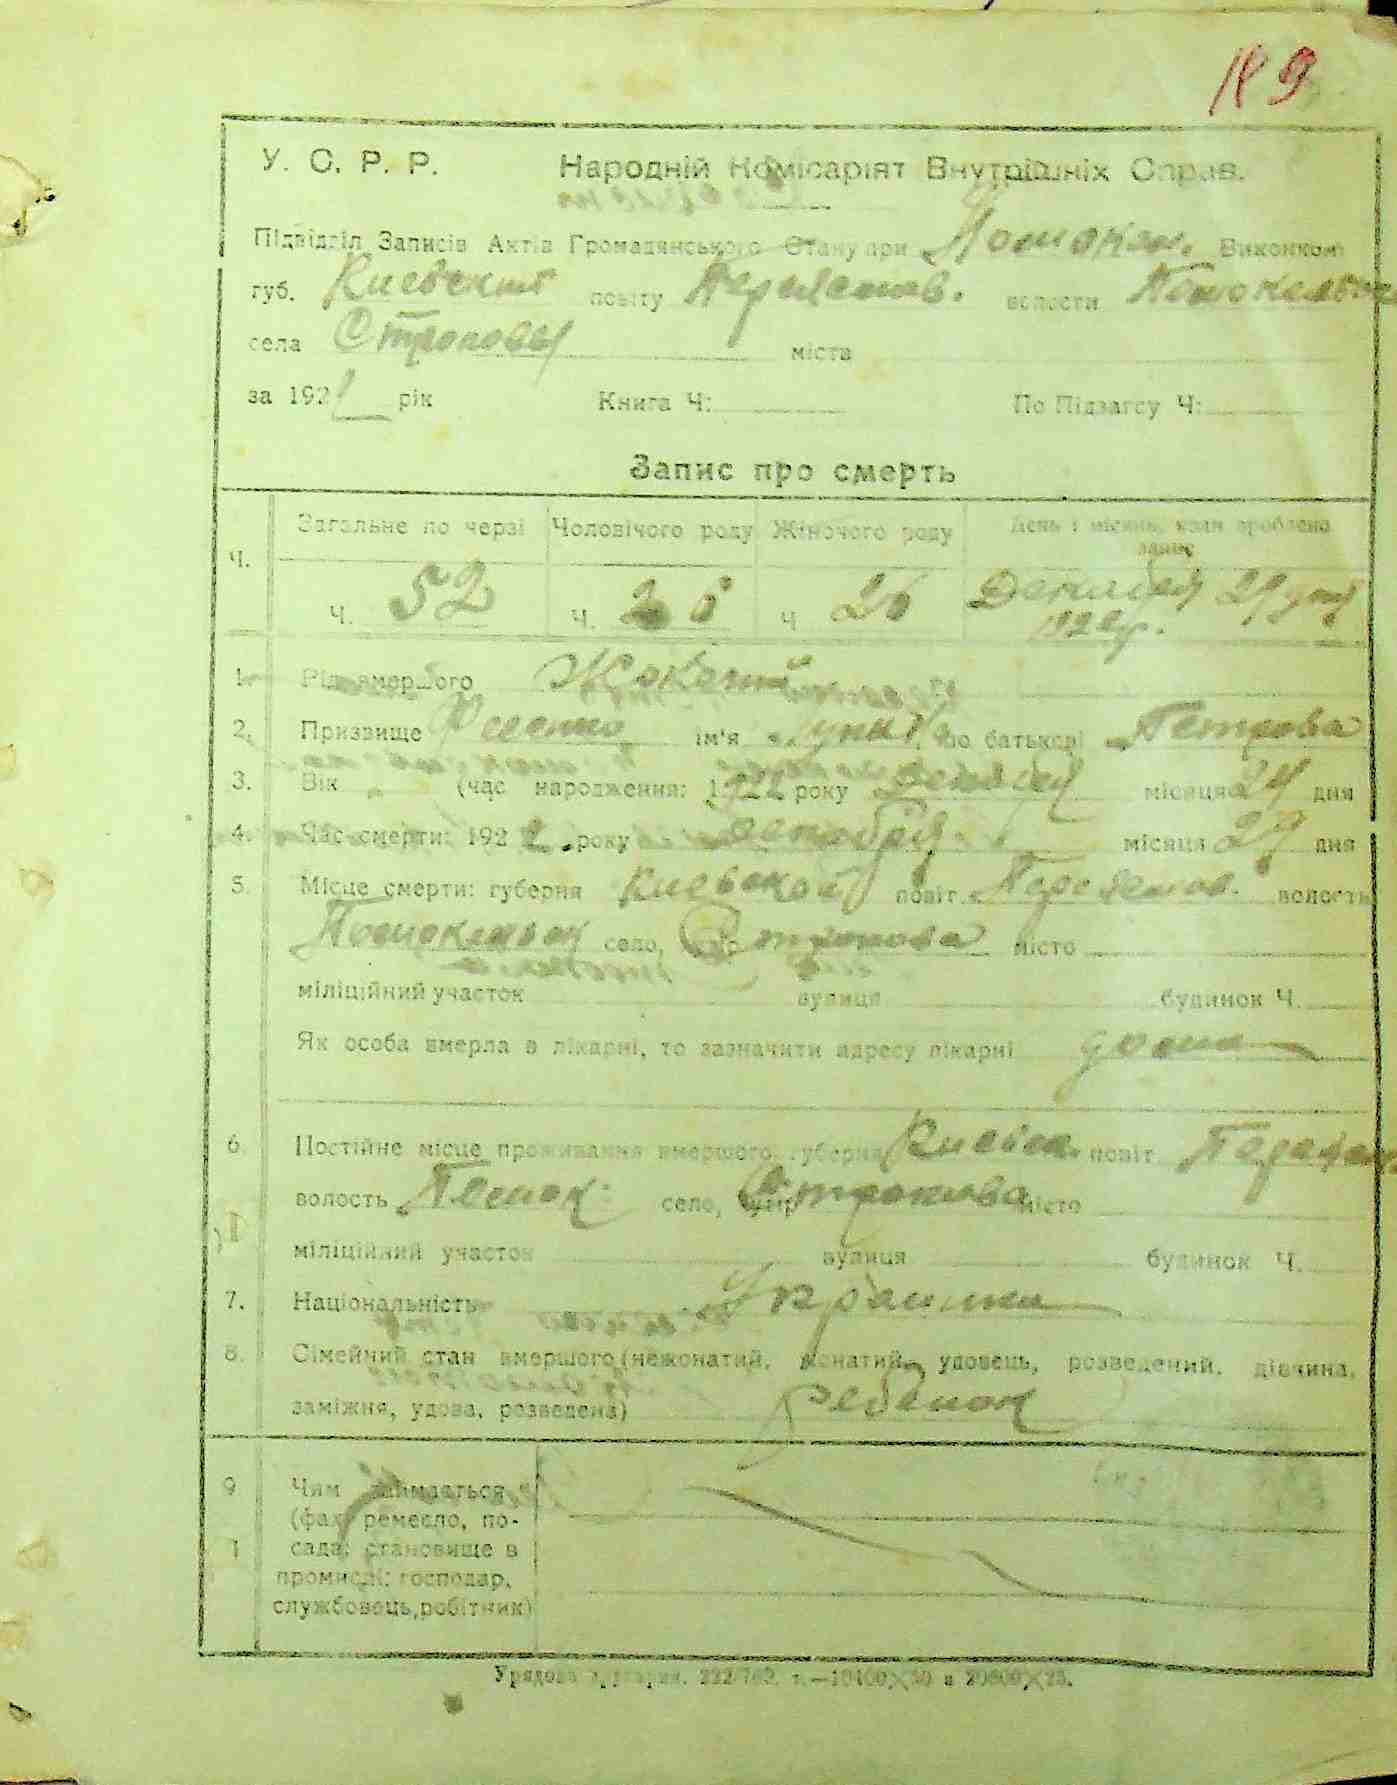 У. С. Р. Р. Народній Комісаріят Внутрішніх Справ.
Підвідділ Записів Актів Громадянського Стану при Виконком
губ. Киевский повіту Переяслав. волости
села Строповы міста
за 192 рік Книга Ч: По Підзагсу Ч:
Запис про смерть
Ч. Загальне по черзі Чоловічого роду Жіночого роду День і місяць, коли зроблено запис
Ч. 52 Ч. 26 Ч 26 Декабря 29 дня
1. Рід вмершого Женский
2. Призвище ім'я по батькові Петрова
3. Вік (час народження: 1922 року Декабря місяця 24 дня
4. Час смерти: 1922 року Декабря місяця 29 дня
5. Місце смерти: губерня Киевской повіт Переяслав. волость
село, Стропова місто
міліційний участок вулиця будинок Ч.
Як особа вмерла в лікарні, то зазначити адресу лікарні дома
6. Постійне місце проживання вмершого: губерня Киевск. повіт
волость село, Стропова місто
міліційний участок вулиця будинок Ч.
7. Національність Украинка
8. Сімейний стан вмершого (нежонатий, жонатий, удовець, розведений, дівчина,
заміжня, удова, розведена) ребенок
9 Чим займається
(фах, ремесло, по-
сада; становище в
промислі: господар,
службовець, робітник)